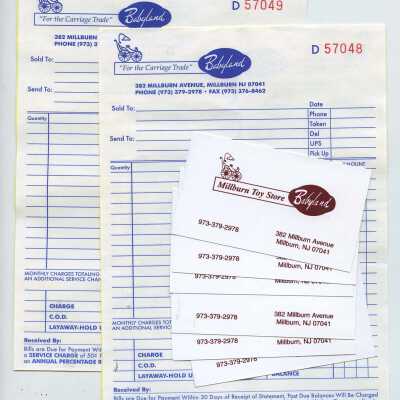 D 57049
Babyland
"For the Carriage Trade"
382 MILLBURN
PHONE (973) 3
Sold To:
Send To:
Quantity
MONTHLY CHARGES TOTALING
AN ADDITIONAL SERVICE CHAR
CHARGE
C.O.D.
LAYAWAY-HOLD U
Received By:
Bills are Due for Payment Within
a SERVICE CHARGE of 50¢
an ANNUAL PERCENTAGE
D 57048
Babyland
"For the Carriage Trade"
382 MILLBURN AVENUE, MILLBURN NJ 07041
PHONE (973) 379-2978 • FAX (973) 376-8462
Sold To:
Send To:
Date
Phone
Taken
Del
UPS
Pick Up
Quantity
AMOUNT
MONTHLY CHARGES TOTALIN
AN ADDITIONAL SERVICE CHA
CHARGE
C.O.D.
LAYAWAY-HOLD UN
BALANCE
Received By:
Bills are Due for Payment Within 20 Days of Receipt of Statement, Past Due Balances Will be Charged
Millburn Toy Store
Babyland
973-379-2978
382 Millburn Avenue
Millburn, NJ 07041
973-379-2978
Millburn, NJ 07041
973-379-2978
382 Millburn Avenue
Millburn, NJ 07041
973-379-2978